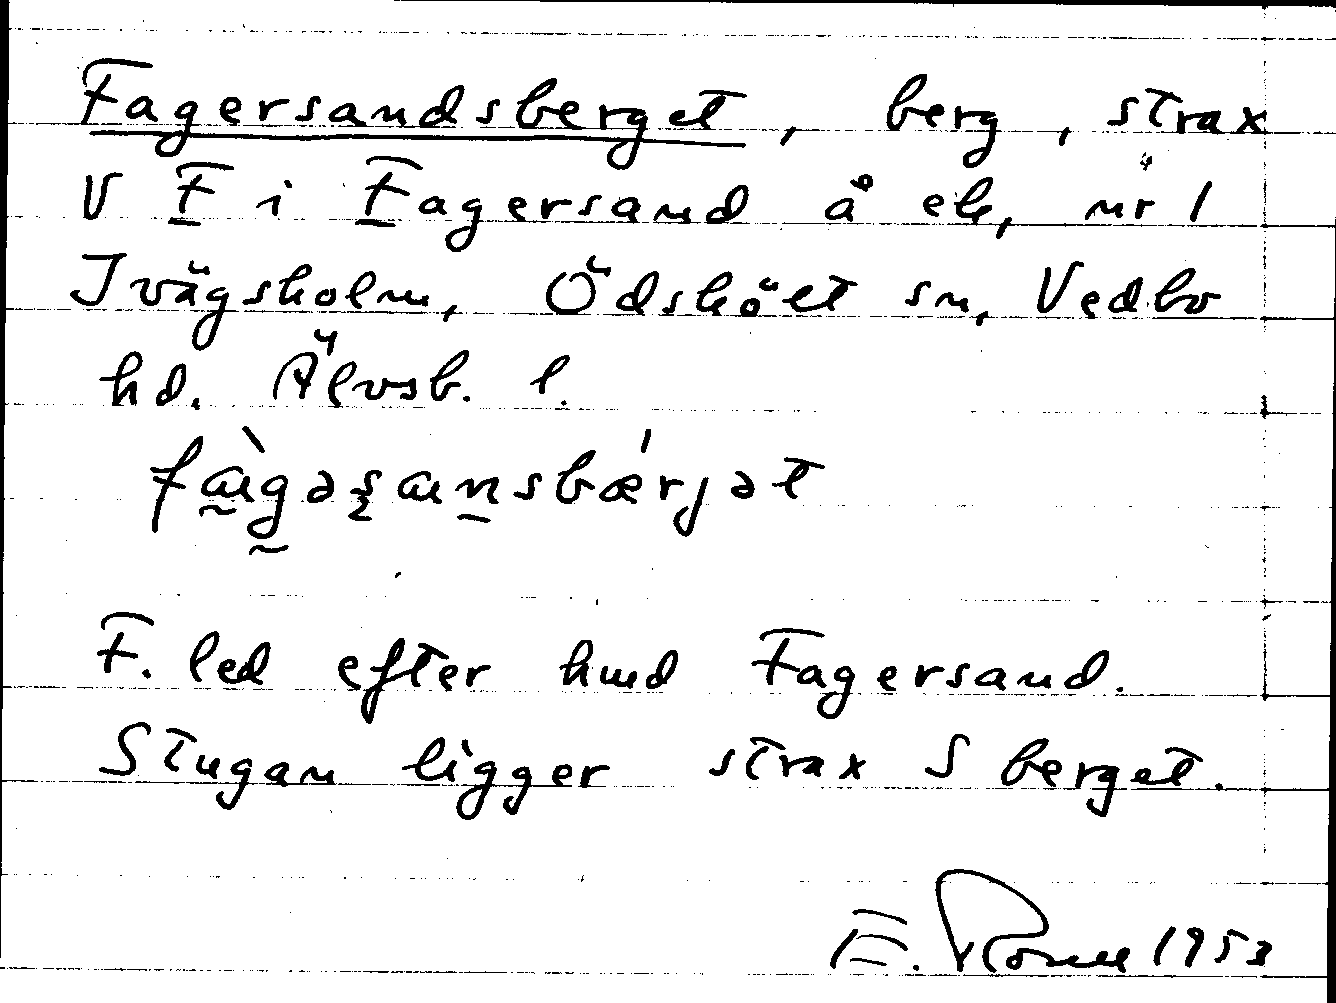 Fagersandsberget, berg, strax
V F i Fagersand å ek, nr 1
Ivägsholm, Ödskölt sn, Vedbo
hd. Älvsb. l.
fàgəsansbǽrjət
F. led efter hmd Fagersand.
Stugan ligger strax S berget.
E. 1953